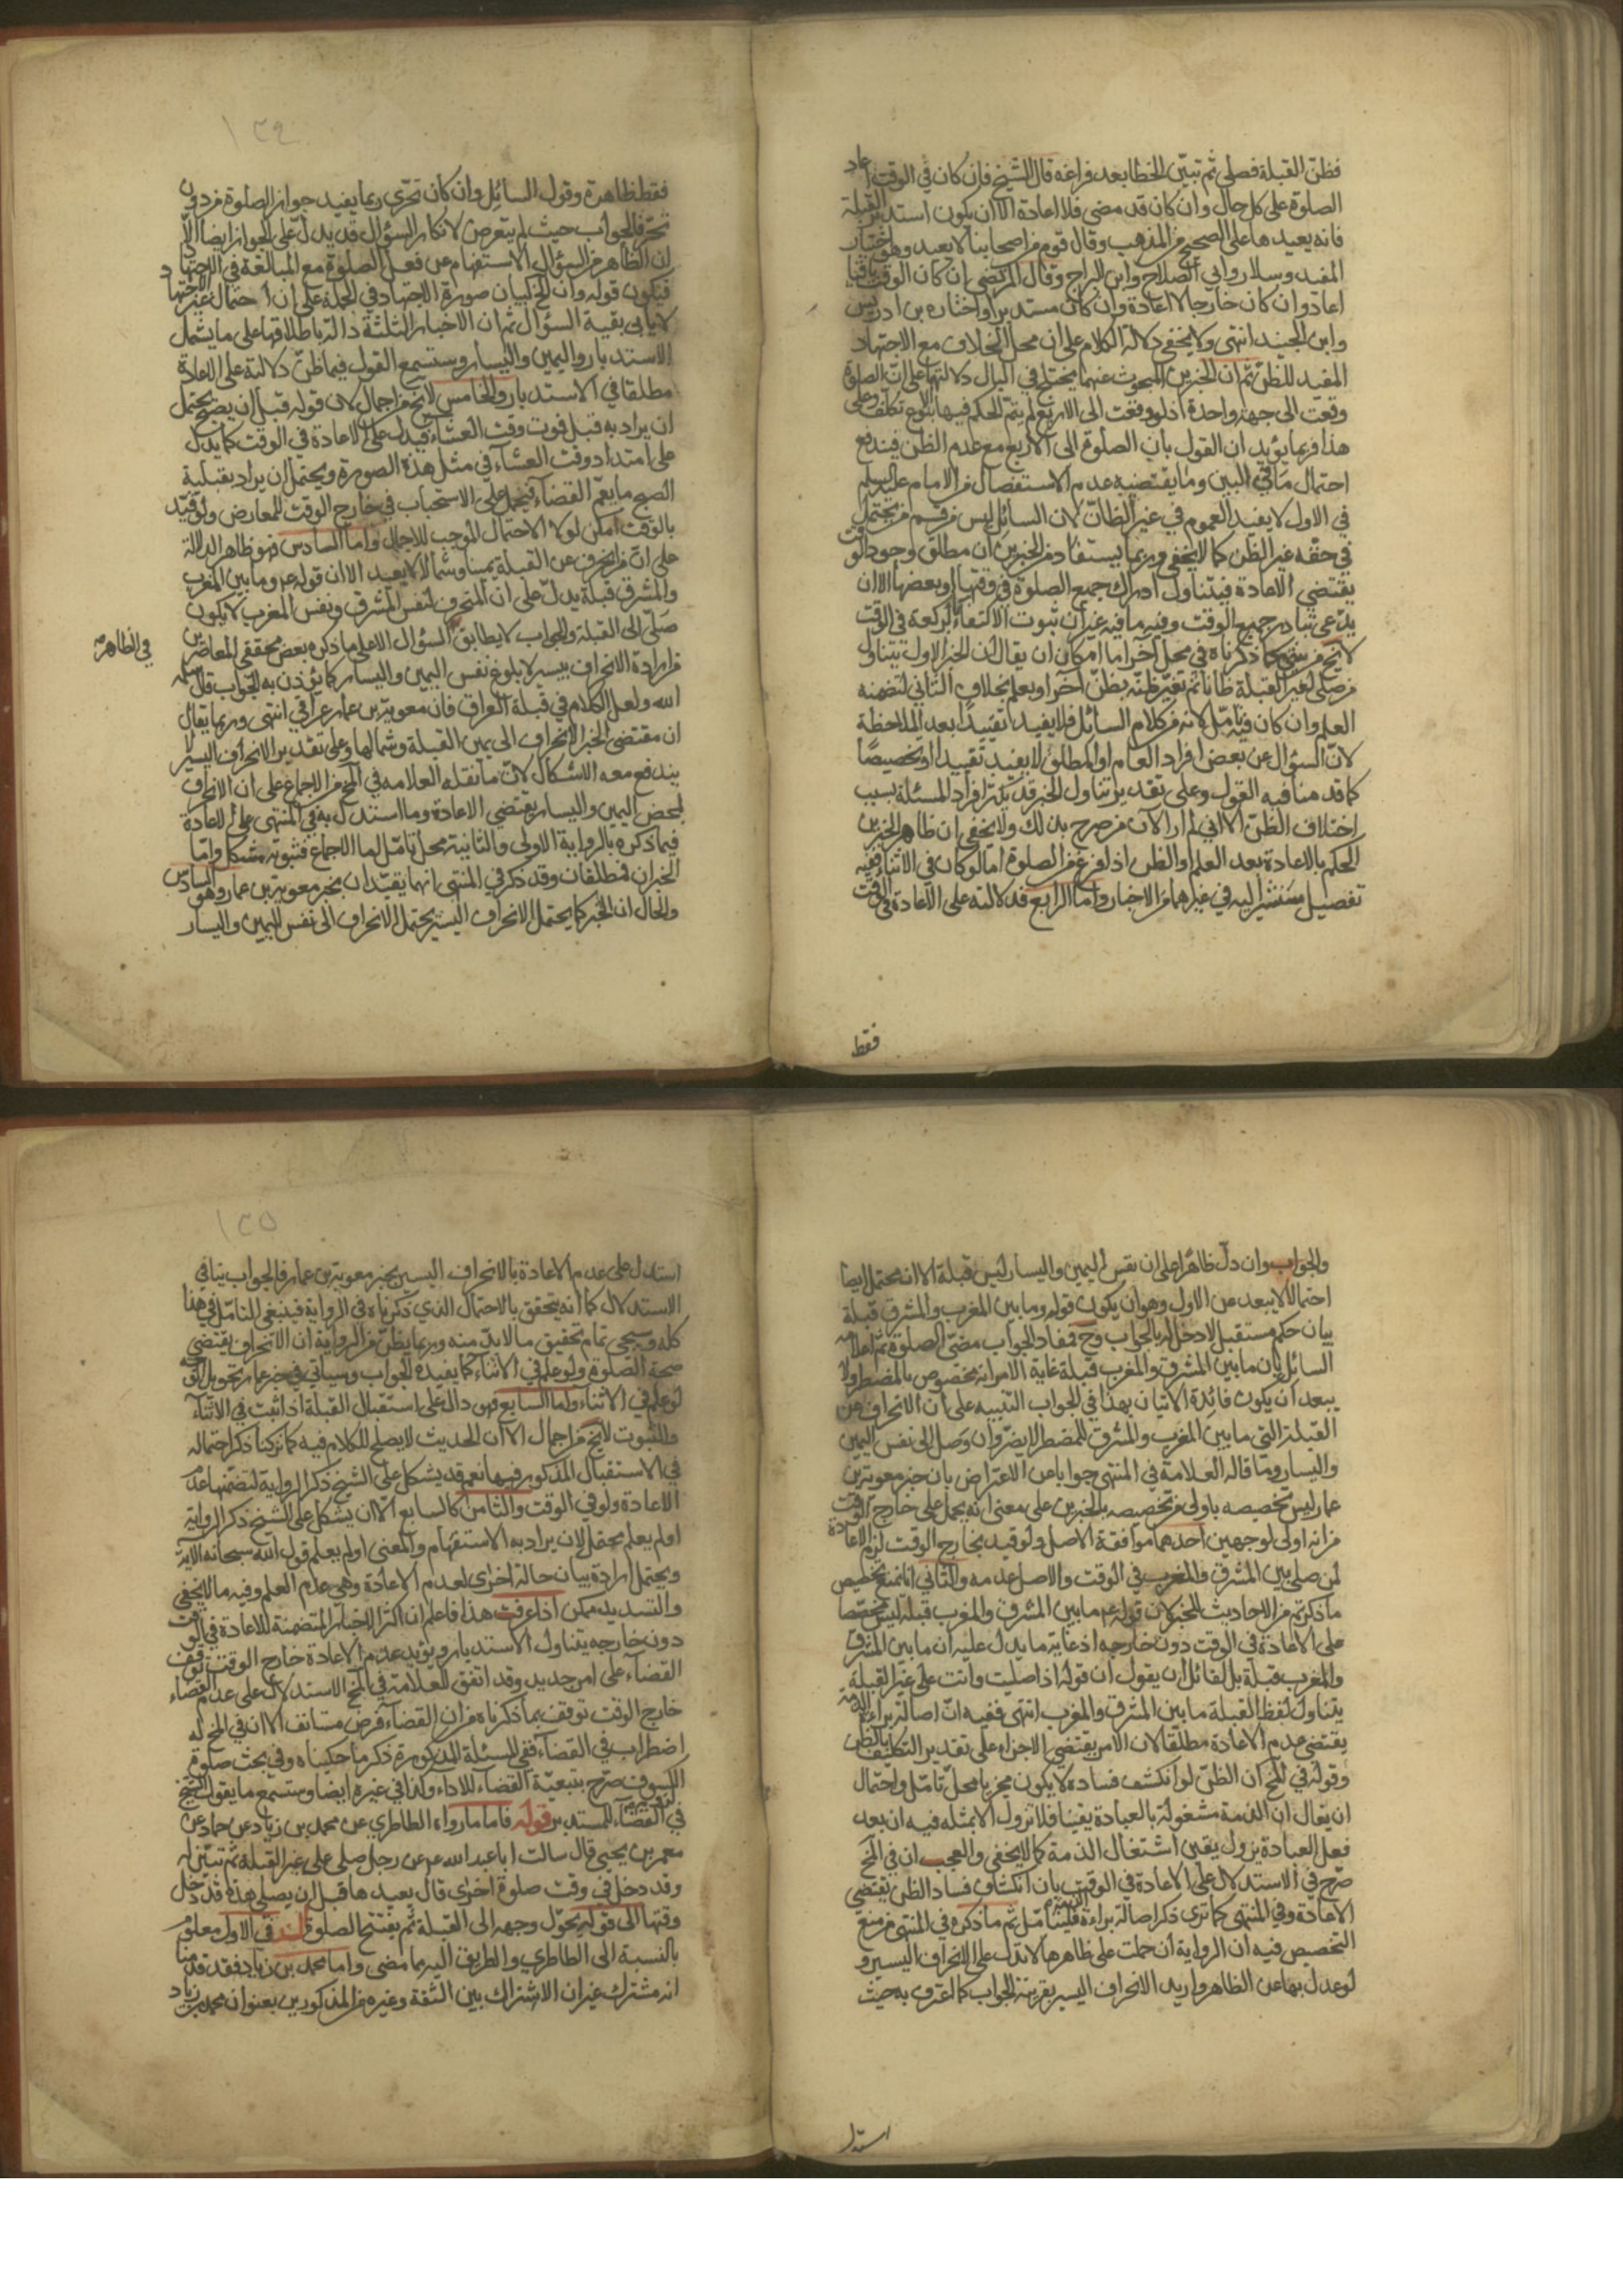 فظنّ القبلة فصلى ثم تبيّن الخطا بعد فراغه قال الشيخ فان كان في الوقت اعاد
الصلوة على كل حال وان كان قد مضى فلا اعادة الا ان يكون استدبر القبلة
فانه يعيدها على الصحيح من المذهب وقال قوم من اصحابنا لا يعيد وهو اختيار
المفيد وسلار وابي الصلاح وابن البراج وقال المرتضى ان كان الوقت باقيا
اعاد وان كان خارجا لا اعادة وان كان مستدبرا واختاره بن ادريس
وابن الجنيد انتهى ولا يخفى دلالة الكلام على ان محل الخلاف مع الاجتهاد
المفيد للظن ثم ان الخبرين المبحوث عنهما يختلج في البال دلالتهما على ان الصلوة
وقعت الى جهة واحدة اذ لو وقعت الى الاربع لم يتم الحكم فيهما الا بنوع تكلف وعلى
هذا فربما يؤيد ان القول بان الصلوة الى الاربع مع عدم الظن فيندفع
احتمال ما في البين وما يقتضيه عدم الاستفصال من الامام عليه السلم
في الاول لا يفيد العموم في غير الظانّ لان السائل ليس من قسم من يحتمل
في حقه غير الظن كما لا يخفى وربما يستفاد من الخبرين ان مطلق وجود الوقت
يقتضي الاعادة فيتناول ادراك جميع الصلوة في وقتها او بعضها الا ان
يدّعى تبادر جميع الوقت وفيه ما فيه غير ان ثبوت الاكتفاء بركعة في الوقت
لا يخ من شئ كما ذكرناه في محل آخر اما امكان ان يقال ان الخبر الاول يتناول
من صلى لغير القبلة ظانا ثم تغيّر ظنّه بظنّ آخر او بعلم بخلاف الثاني لتضمنه
العلم وان كان فيه تامّل لانه من كلام السائل فلا يفيد تقييدا بعد الملاحظة
لانّ السؤال عن بعض افراد العام او المطلق لا يفيد تقييدا او تخصيصا
كما قدمنا فيه القول وعلى تقدير تناول الخبر قد يكثر افراد المسئلة بسبب
اختلاف الظنّ الا اني لم ار الآن من صرح بذلك ولا يخفى ان ظاهر الخبرين
الحكم بالاعادة بعد العلم او الظن اذا فرغ من الصلوة اما لو كان في الاثناء ففيه
تفصيل سنشير اليه في غيرهما من الاخبار واما الرابع فدلالته على الاعادة في الوقت
فقط
فقط ظاهرة وقول السائل وان كان تحرّى ربما يفيد جواز الصلوة من دون
تحرّ فالجواب حيث لم يتعرض لانكار السؤال قد يدل على الجواز ايضا الا
ان الظاهر من السؤال الاستفهام عن فعل الصلوة مع المبالغة في الاجتهاد
فيكون قوله وان الخ لبيان صورة الاجتهاد في الجملة على ان احتمال غير الاجتهاد
لا يابى بقية السؤال ثم ان الاخبار الثلثة دالة باطلاقها على ما يشمل
الاستدبار واليمين واليسار وستسمع القول فيما ظنّ دلالته على الاعادة
مطلقا في الاستدبار والخامس لا يخ من اجمال لان قوله قبل ان يصبح يحتمل
ان يراد به قبل فوت وقت العشاء فيدل على الاعادة في الوقت كما يدل
على امتداد وقت العشاء في مثل هذه الصورة ويحتمل ان يراد بقبلية
الصبح ما يعمّ القضاء فيحمل على الاستحباب في خارج الوقت للمعارض ولو قيّد
بالوقت امكن لولا الاحتمال الموجب للاجمال واما السادس فهو ظاهر الدلالة
على انّ من انحرف عن القبلة يمينا وشمالا لا يعيد الا ان قوله عم وما بين المغرب
والمشرق قبلة يدلّ على ان المنحرف لنفس المشرق ونفس المغرب لا يكون
صلّى الى القبلة والجواب لا يطابق السؤال الا على ما ذكره بعض محققي المعاصرين
في الظاهر
من ارادة الانحراف بيسير لا بلوغ نفس اليمين واليسار كما يؤذن به الجواب قال سلمه
الله ولعل الكلام في قبلة العراق فان معوية بن عمار عراقي انتهى وربما يقال
ان مقتضى الخبر الانحراف الى يمين القبلة وشمالها وعلى تقدير الانحراف اليسير لا
يندفع معه الاشكال لانّ ما نقله العلامه في المخ من الاجماع على ان الانحراف
لمحض اليمين واليسار يقتضي الاعادة وما استدل به في المنتهى على الاعادة
فيما ذكره بالرواية الاولى والثانية محل تامّل اما الاجماع فثبوته مشكل واما
الخبران فمطلقان وقد ذكر في المنتهى انهما يقيّدان بخبر معوية بن عمار وهو السادس
والحال ان الخبر كما يحتمل الانحراف اليسير يحتمل الانحراف الى نفس اليمين واليسار
والجواب وان دلّ ظاهرا على ان نفس اليمين واليسار ليس قبلة الا انه محتمل ايضا
احتمالا لا يبعد عن الاول وهو ان يكون قوله وما بين المغرب والمشرق قبلة
بيان حكم مستقبل لا دخل له بالجواب وح فمفاد الجواب مضىّ الصلوة ثم اعلامه
السائل بان ما بين المشرق والمغرب قبلة غاية الامر انه مخصوص بالمضطر ولا
يبعد ان يكون فائدة الاتيان بهذا في الجواب التنبيه على ان الانحراف من
القبلة التي ما بين المغرب والمشرق للمضطر لا يضرّ وان وصل الى نفس اليمين
واليسار وما قاله العلامة في المنتهى جوابا عن الاعتراض بان خبر معوية بن
عمار ليس تخصيصه باولى من تخصيصه بالخبرين على معنى انه يحمل على خارج الوقت
من انه اولى لوجهين احدهما موافقة الاصل ولو قيد بخارج الوقت لزم الاعادة
لمن صلى بين المشرق والمغرب في الوقت والاصل عدمه والثاني انا نمنع تخصيص
ما ذكرتم من الاحاديث للخبر لان قوله عم ما بين المشرق والمغرب قبلة ليس مخصصا
على الاعادة في الوقت دون خارجه اذ غاية ما يدل عليه ان ما بين المشرق
والمغرب قبلة بل لقائل ان يقول ان قوله اذا صليت وانت على غير القبلة
يتناول لفظ القبلة ما بين المشرق والمغرب انتهى ففيه انّ اصالة براءة الذمة
يقتضي عدم الاعادة مطلقا لان الامر يقتضي الاجزاء على تقدير التكليف بالظن
وقوله في المخ ان الظنّ لو انكشف فساده لا يكون مجزيا محلّ تامّل واحتمال
ان يقال ان الذمة مشغولة بالعبادة يقينا فلا تزول الا بمثله فيه ان بعد
فعل العبادة يزول يقين اشتغال الذمة كما لا يخفى والعجب ان في المخ
صرّح في الاستدلال على الاعادة في الوقت بان انكشاف فساد الظن يقتضي
الاعادة وفي المنتهى كما ترى ذكر اصالة براءة الذمة فليتامّل ثم ما ذكره في المنتهى من منع
التخصيص فيه ان الرواية ان حملت على ظاهرها لا تدل على الانحراف اليسير و
لو عدل بها عن الظاهر واريد الانحراف اليسير بقرينة الجواب كما اعترف به حيث
استدل
استدل على عدم الاعادة بالانحراف اليسير بخبر معوية بن عمار فالجواب ينافي
الاستدلال كما انه يتحقق بالاحتمال الذي ذكرناه في الرواية فينبغي التامّل في هذا
كله وسيجئ تمام تحقيق ما لا بدّ منه وربما يظنّ من الرواية ان الانحراف يقتضي
صحة الصلوة ولو علم في الاثناء كما يفيده الجواب وسياتي في خبر عمار تحويل الوجه
لو علم في الاثناء واما السابع فهو دال على استقبال القبلة اذا ثبت في الاثناء
والثبوت لا يخ من اجمال الا ان الحديث لا يصلح للكلام فيه كما تركنا ذكر احتماله
في الاستقبال المذكور فيها نعم قد يشكل على الشيخ ذكر الرواية لتضمنها عدم
الاعادة ولو في الوقت والثامن كالسابع الا ان يشكل على الشيخ ذكر الرواية
اولم يعلم محتمل لان يراد به الاستفهام والمعنى اولم يعلم قول الله سبحانه الآية
ويحتمل ارادة بيان حالة اخرى لعدم الاعادة وهي عدم العلم وفيه ما لا يخفى
والتسديد ممكن اذا عرفت هذا فاعلم ان اكثر الاخبار المتضمنة للاعادة في الوقت
دون خارجه يتناول الاستدبار ويؤيد عدم الاعادة خارج الوقت توقف
القضاء على امر جديد وقد اتفق للعلامة في المخ الاستدلال على عدم القضاء
خارج الوقت توقف بما ذكرناه من ان القضاء فرض مستانف الا ان في المخ له
اضطراب في القضاء ففي المسئلة المذكورة ذكر ما حكيناه وفي بحث صلوة
الكسوف صرّح بتبعيّة القضاء للاداء ولنا في غيره ايضا وستسمع ما يقوله الشيخ
في القضاء للمستدبر قوله فاما ما رواه الطاطري عن محمد بن زياد عن حماد عن
معمر بن يحيى قال سالت ابا عبد الله عم عن رجل صلى على غير القبلة ثم تبيّن له
وقد دخل في وقت صلوة اخرى قال يعيدها قبل ان يصلي هذه قد دخل
وقتها الى قوله يحوّل وجهه الى القبلة ثم يفتتح الصلوة السند في الاول معلوم
بالنسبة الى الطاطري والطريق اليه مما مضى واما محمد بن زياد فقد قدمنا
انه مشترك غير ان الاشتراك بين الثقة وغيره من المذكورين بعنوان محمد بن زياد